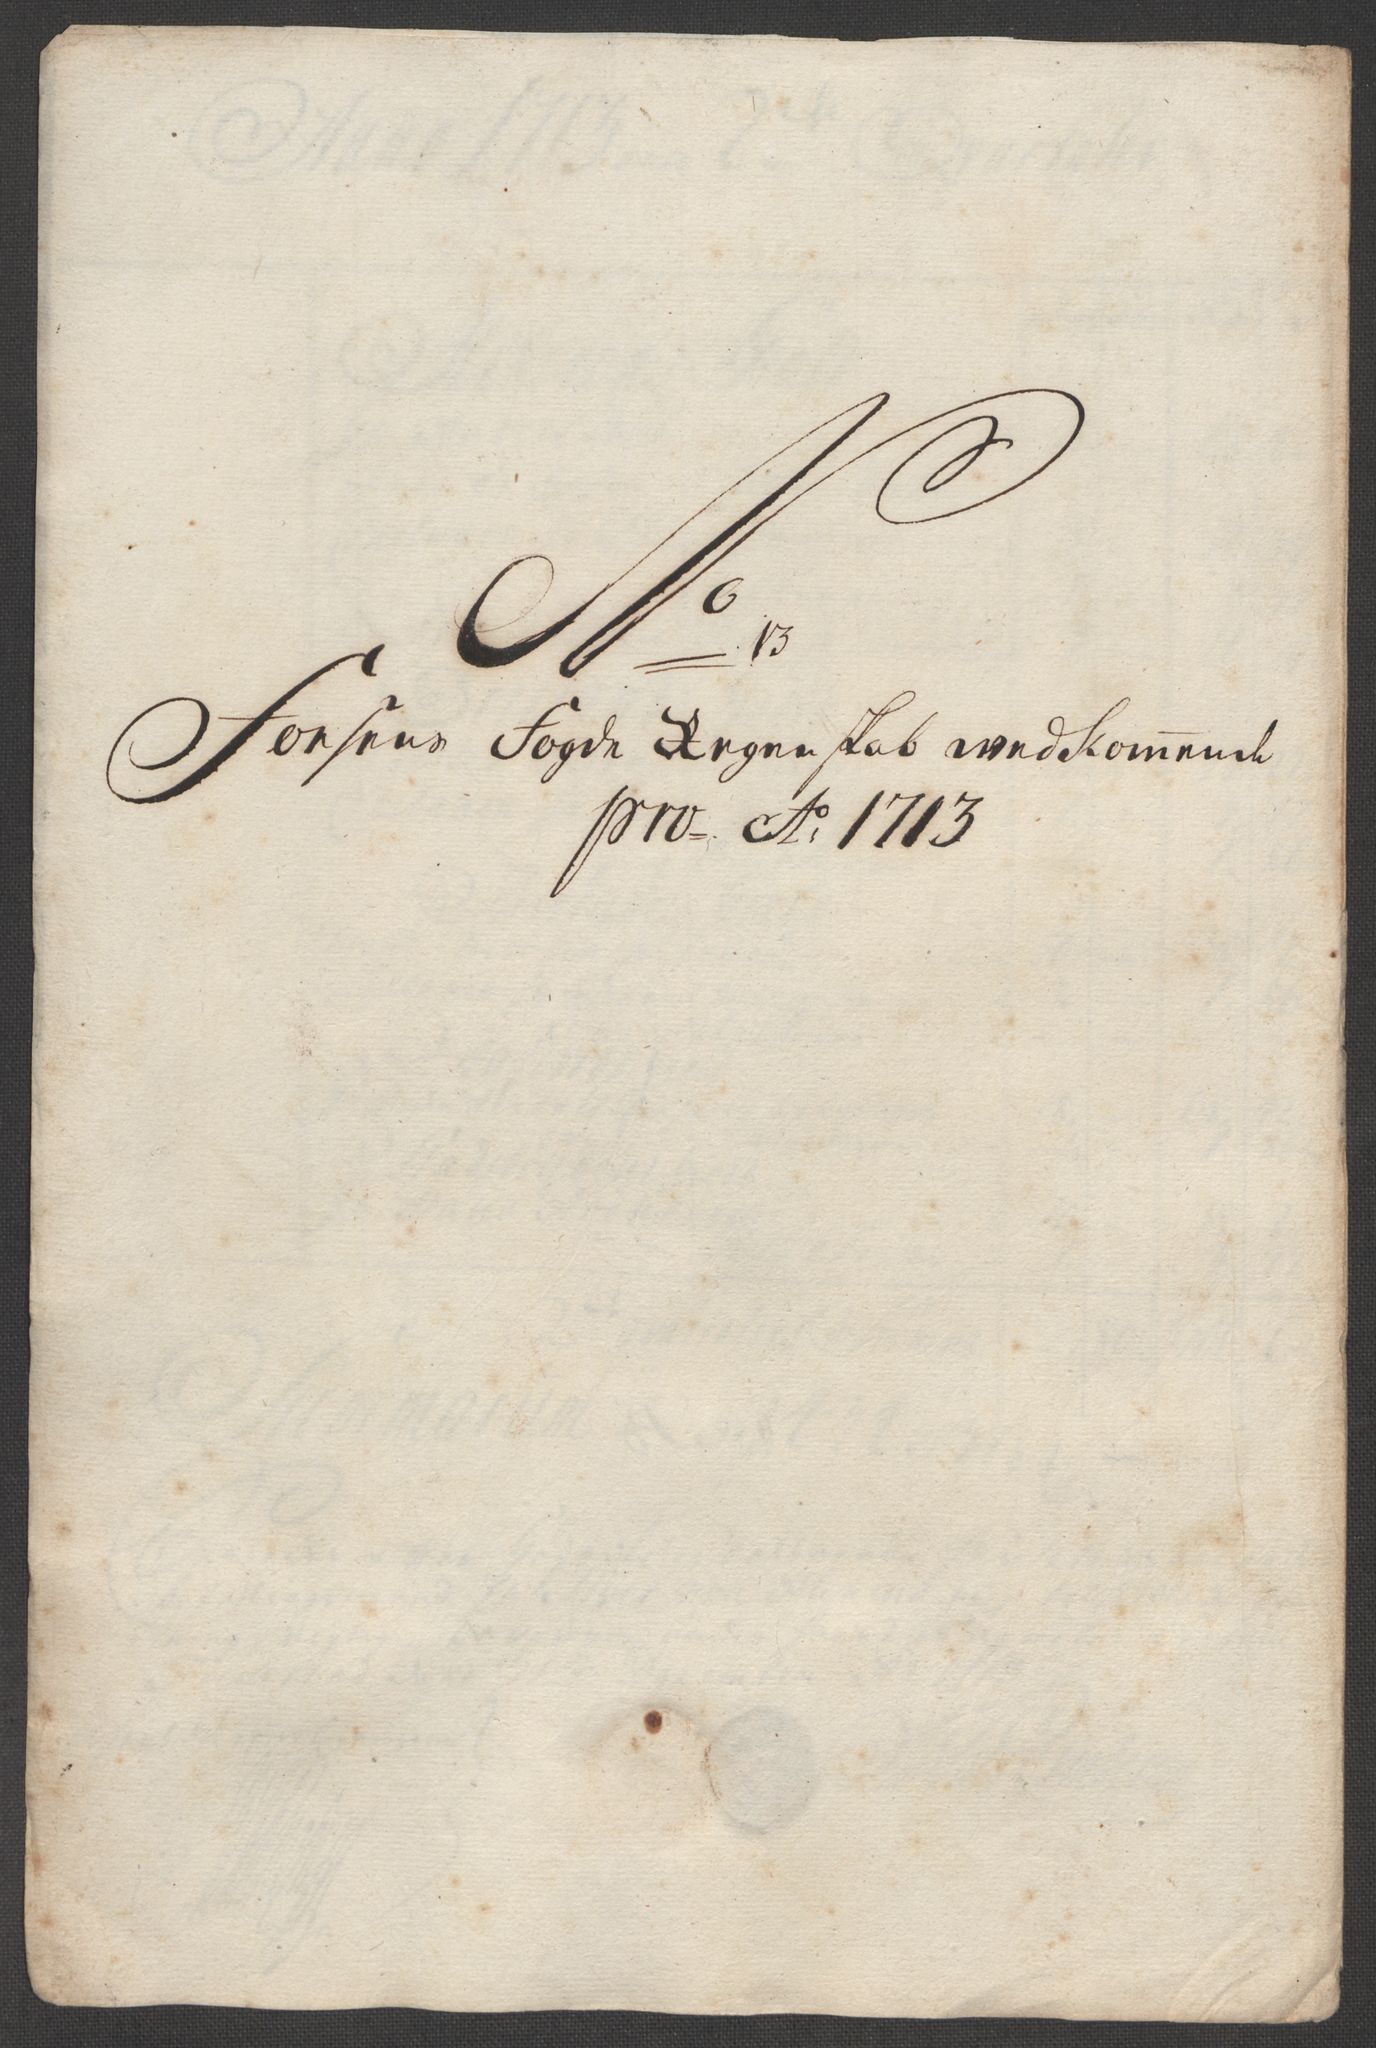 No 13
Fosens Fogde Regenskab wedkom̅ende
pro Ao: 1713